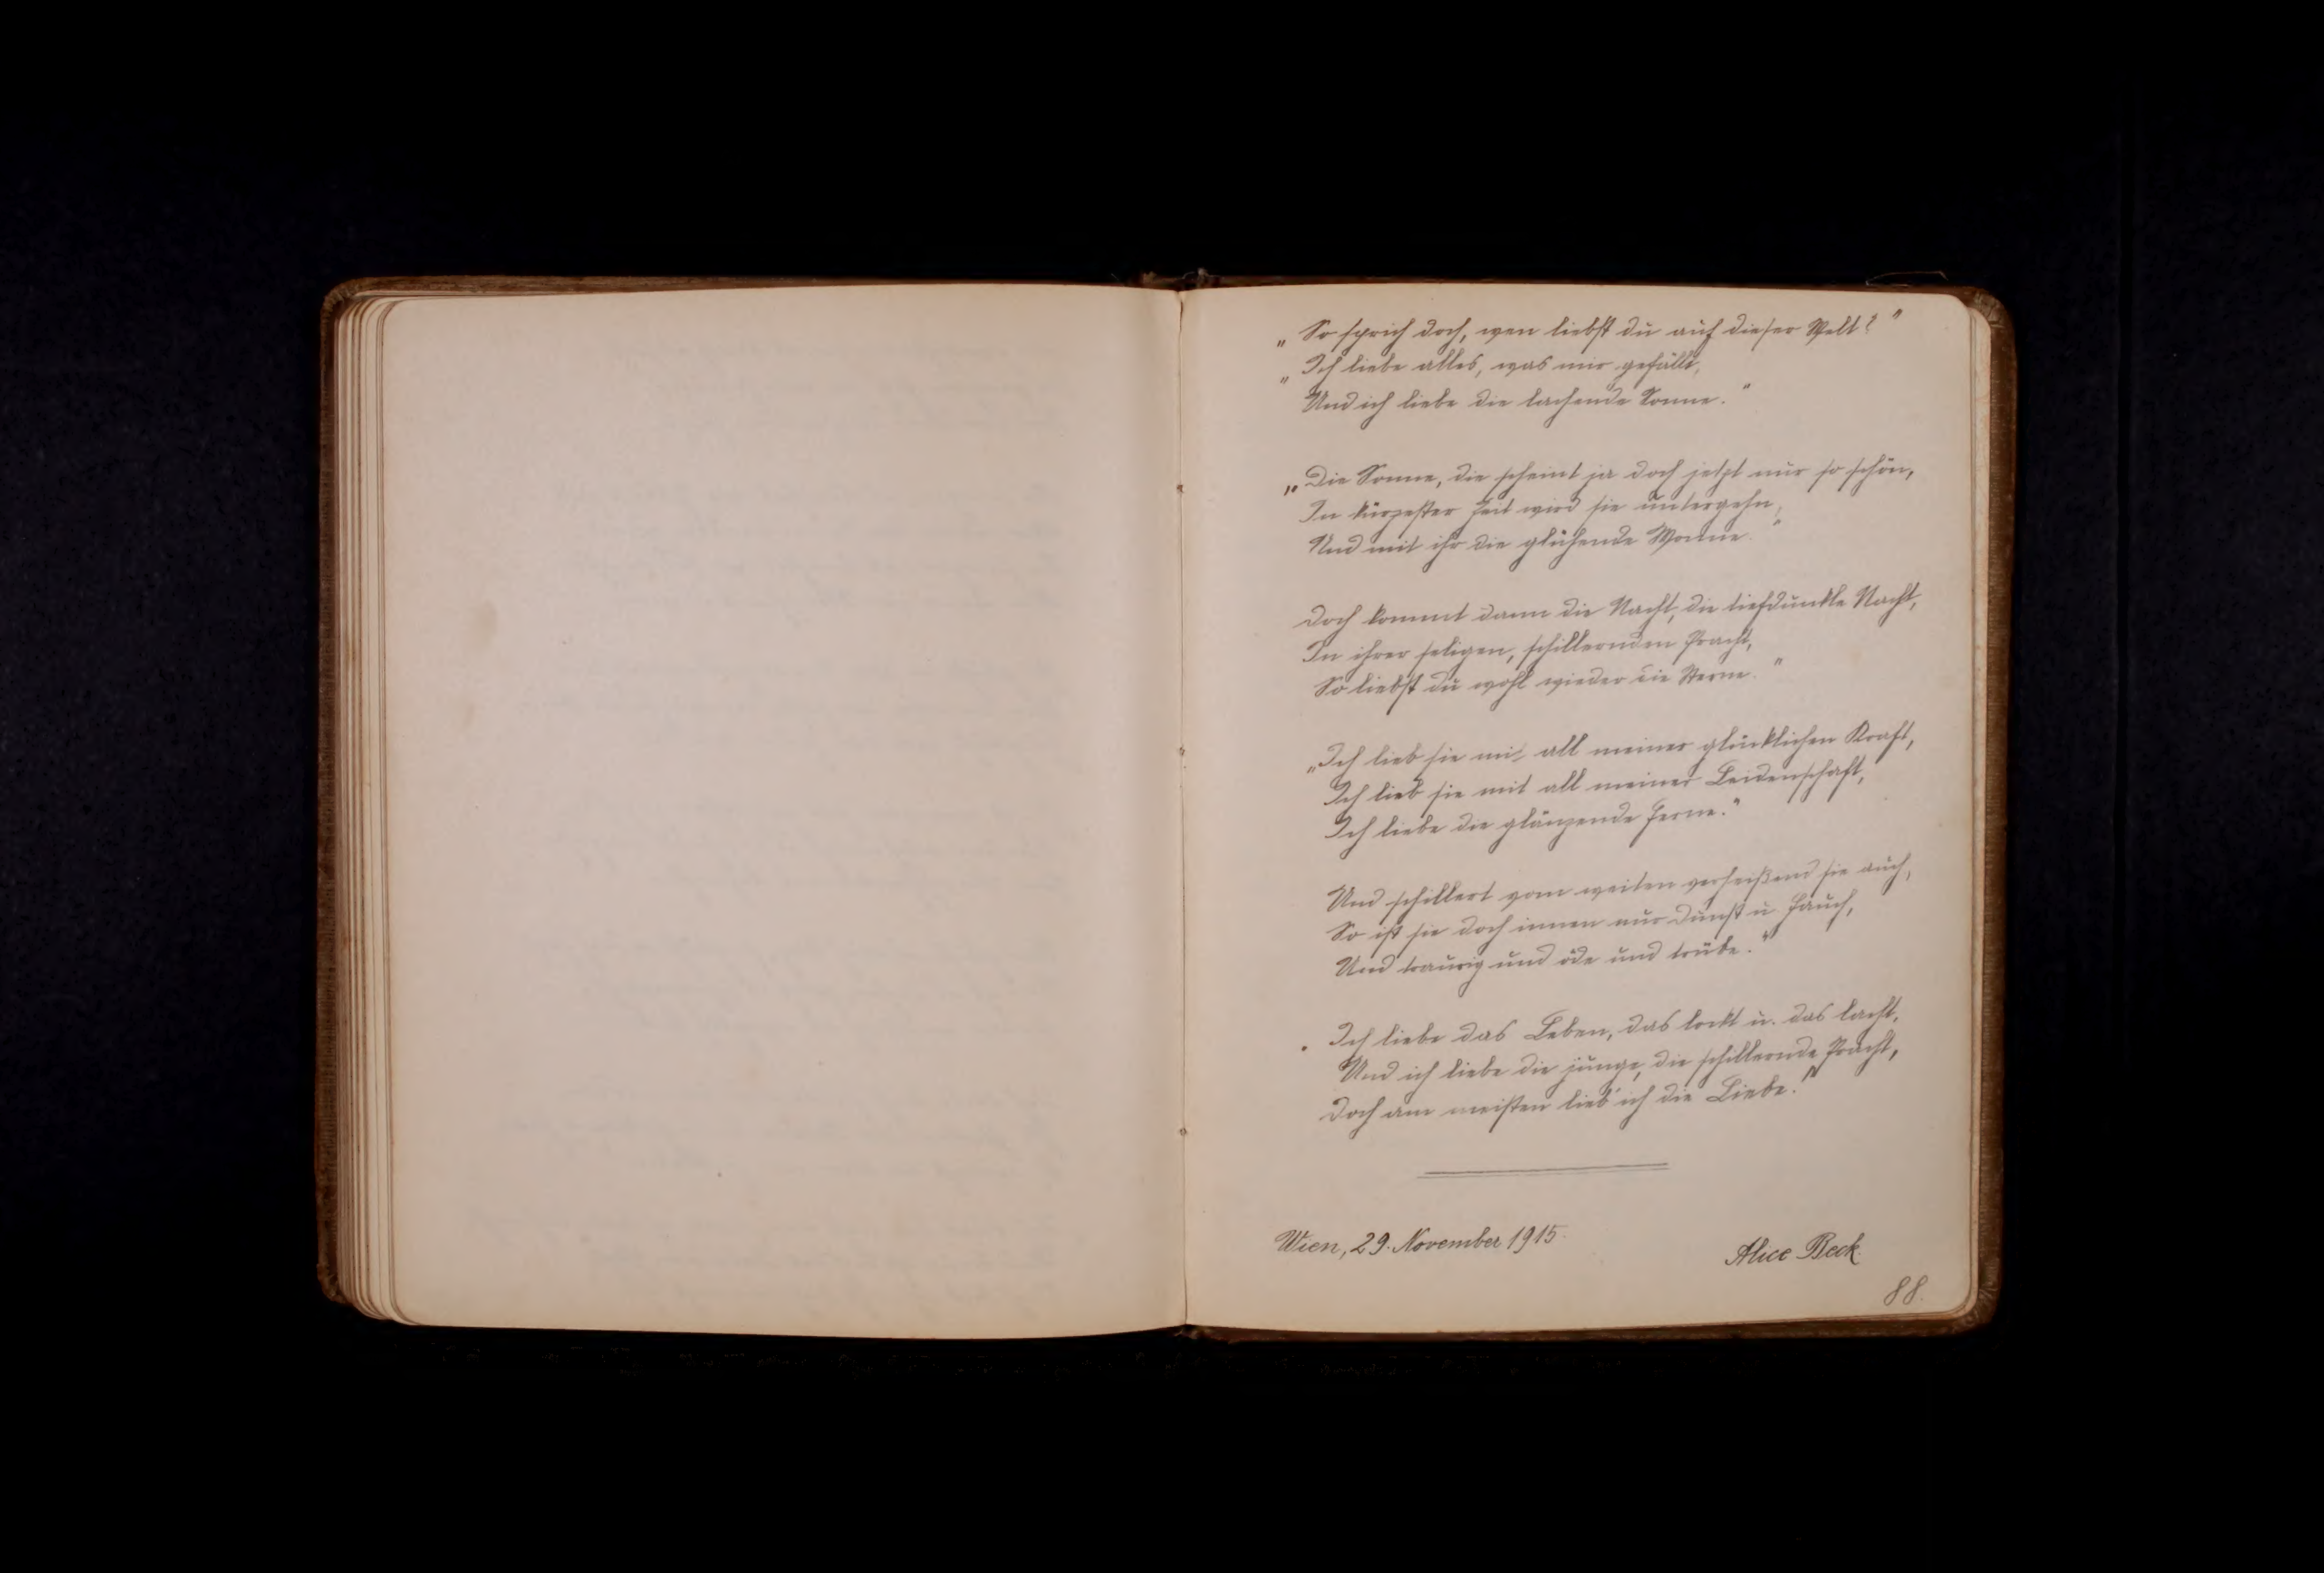 „So sprich doch, wen liebst du auf dieser Welt?"
„Ich liebe alles, was mir gefällt,
Und ich liebe die lachende Sonne."
„Die Sonne, die scheint ja doch jetzt nur so schön,
In kürzester Zeit wird sie untergehn,
Und mit ihr die glühende Wonne."
Doch kommt dann die Nacht, die tiefdunkle Nacht,
In ihrer seligen, schillernden Pracht,
So liebst du wohl wieder die Sterne."
„Ich lieb sie mit all meiner glücklichen Kraft,
Ich lieb sie mit all meiner Leidenschaft,
Ich liebe die glänzende Ferne."
Und schillert vom weiten verheißend sie auch,
So ist sie doch innen nur Dunst u Hauch,
Und traurig und öde und trübe."
„Ich liebe das Leben, das lockt u. das lacht,
Und ich liebe die junge, die schillernde Pracht,
Doch am meisten lieb' ich die Liebe."
Wien, 29. November 1915.
Alice Beck.
88.